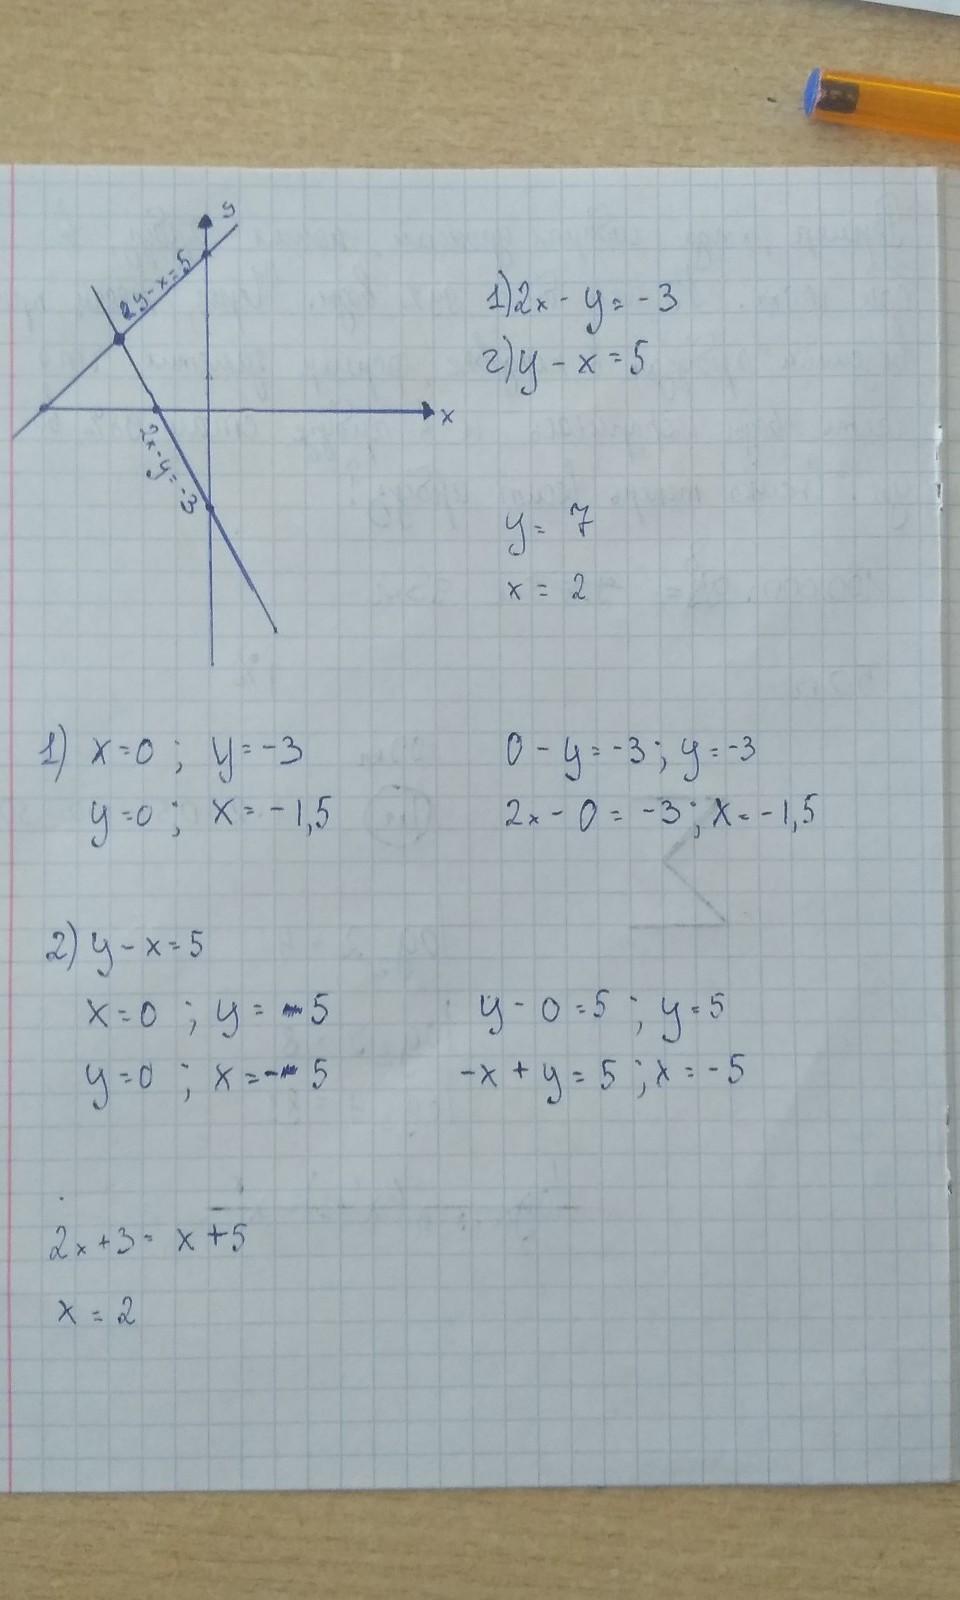 y
2y-x=5
x
2x-y=-3
1) 2x - y = -3
2) y - x = 5
y = 7
x = 2
1) x=0 ; y=-3
0 - y = -3 ; y = -3
y=0 ; x = -1,5
2x - 0 = -3 ; x = -1,5
2) y - x = 5
x=0 ; y = 5
y - 0 = 5 ; y = 5
y=0 ; x = - 5
-x + y = 5 ; x = -5
2x + 3 = x + 5
x = 2